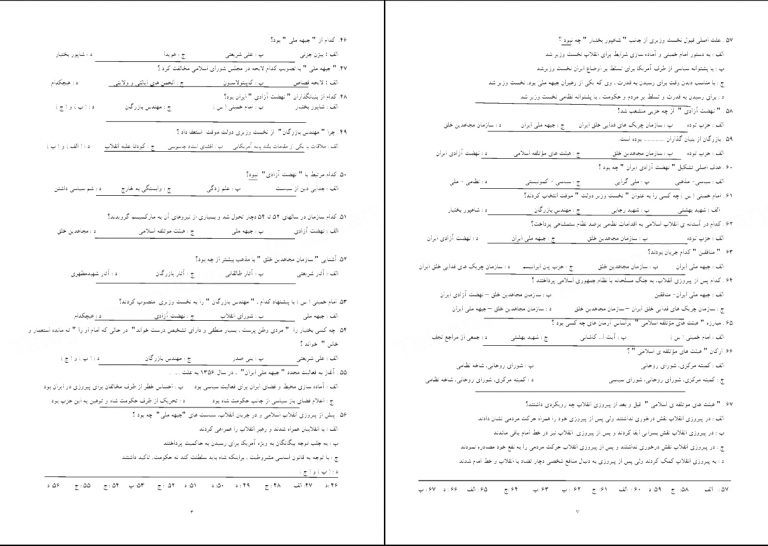 ۴۶. کدام از " جبهه ملی " بود؟
الف : بیژن جزنی ب : علی شریعتی ج : هویدا د : شاپور بختیار
۴۷. " جبهه ملی " به تصویب کدام لایحه در مجلس شورای اسلامی مخالفت کرد ؟
الف : لایحه قصاص ب : کاپیتولاسیون ج : انجمن های ایالتی و ولایتی د : هیچکدام
۴۸. کدام از بنیانگذاران " نهضت آزادی " ایران بود؟
الف : شاپور بختیار ب : امام خمینی ( س ) ج : مهندس بازرگان د : ( ب ) و ( ج )
۴۹. چرا " مهندس بازرگان " از نخست وزیری دولت موقت استعفا داد ؟
الف : ملاقات با یکی از مقامات بلند پایه آمریکایی ب : افشای اسناد جاسوسی ج : کودتا علیه انقلاب د : ( الف ) و ( ب )
۵۰. کدام مرتبط با " نهضت آزادی " نبود؟
الف : جدایی دین از سیاست ب : علم زدگی ج : وابستگی به خارج د : شم سیاسی داشتن
۵۱. کدام سازمان در سالهای ۵۲ تا ۵۴ دچار تحول شد و بسیاری از نیروهای آن به مارکسیسم گرویدند؟
الف : نهضت آزادی ب : جبهه ملی ج : هیئت موتلفه اسلامی د : مجاهدین خلق
۵۲. آشنایی " سازمان مجاهدین خلق " با مذهب بیشتر از چه بود؟
الف : آثار شریعتی ب : آثار طالقانی ج : آثار بازرگان د : آثار شهیدمطهری
۵۳. امام خمینی ( س ) با پیشنهاد کدام ، " مهندس بازرگان " را به نخست وزیری منصوب کردند؟
الف : جبهه ملی ب : شورای انقلاب ج : نهضت آزادی د : هیچکدام
۵۴. چه کسی بختیار را " مردی وطن پرست ، بسیار منطقی و دارای تشخیص درست خواند " در حالی که امام او را " ته مانده استعمار و
خائن " خواند ؟
الف : علی شریعتی ب : بنی صدر ج : مهندس بازرگان د : ( ب ) و ( ج )
۵۵. آغاز به فعالیت مجدد " جبهه ملی ایران" ، در سال ۱۳۵۶ به علت ... .
الف : آماده سازی محیط و فضای ایران برای فعالیت سیاسی بود ب : احساس خطر از طرف مخالفان برای پیروزی در ایران بود
ج : اعلام فضای باز سیاسی از جانب حکومت شاه بود د : تحریک از طرف حکومت شاه و توهین به این حزب بود
۵۶. پیش از پیروزی انقلاب اسلامی و در جریان انقلاب، سیاست های "جبهه ملی" چه بود ؟
الف : با انقلابیان همراه شدند و رهبر انقلاب را همراهی کردند
ب : به جلب توجه بیگانگان به ویژه آمریکا برای رسیدن به حاکمیت پرداختند
ج : با توجه به قانون اساسی مشروطیت ، براینکه شاه باید سلطنت کند نه حکومت ، تاکید داشتند
د : ( ب ) و ( ج )
۴۶: د ۴۷: الف ۴۸: ج ۴۹: د ۵۰: د ۵۱: د ۵۲: ج ۵۳: ب ۵۴: ج ۵۵: ج ۵۶: د
۶
۵۷. علت اصلی قبول نخست وزیری از جانب " شاهپور بختیار " چه نبود ؟
الف : به دستور امام خمینی و آماده سازی شرایط برای انقلاب نخست وزیر شد
ب : با پشتوانه سیاسی از طرف آمریکا برای تسلط بر اوضاع ایران نخست وزیرشد
ج : با مناسب دیدن وقت برای رسیدن به قدرت ، وی که یکی از رهبران جبهه ملی بود، نخست وزیر شد
د : برای رسیدن به قدرت و تسلط بر مردم و حکومت ، با پشتوانه نظامی نخست وزیر شد
۵۸. " نهضت آزادی " از چه حزبی منشعب شد؟
الف : حزب توده ب : سازمان چریک های فدایی خلق ایران ج : جبهه ملی ایران د : سازمان مجاهدین خلق
۵۹. بازرگان از بنیان گذاران ............ بوده است.
الف : حزب توده ب : سازمان مجاهدین خلق ج : هیئت های مؤتلفه اسلامی د : نهضت آزادی ایران
۶۰. هدف اصلی تشکیل " نهضت آزادی ایران " چه بود ؟
الف : سیاسی- مذهبی ب : ملی گرایی ج : سیاسی - کمونیستی د : نظامی - ملی
۶۱. امام خمینی ( س ) چه کسی را به عنوان " نخست وزیر دولت " موقت انتخاب کردند؟
الف : شهید بهشتی ب : شهید رجایی ج : مهندس بازرگان د : شاهپور بختیار
۶۲. کدام در آستانه ی انقلاب اسلامی به اقدامات نظامی برضد نظام ستمشاهی پرداخت؟
الف : حزب توده ب : سازمان مجاهدین خلق ج : جبهه ملی ایران د : نهضت آزادی ایران
۶۳. " منافقین " کدام جریان بودند؟
الف : جبهه ملی ایران ب : سازمان مجاهدین خلق ج : حزب پان ایرانیسم د : سازمان چریک های فدایی خلق ایران
۶۴. کدام پس از پیروزی انقلاب، به جنگ مسلحانه با نظام جمهوری اسلامی پرداختند ؟
الف : جبهه ملی ایران- منافقین ب : سازمان مجاهدین خلق – نهضت آزادی ایران
ج : سازمان چریک های فدایی خلق ایران –سازمان مجاهدین خلق د : سازمان مجاهدین خلق – جبهه ملی ایران
۶۵. مبارزه " هیئت های مؤتلفه اسلامی " براساس آرمان های چه کسی بود ؟
الف : امام خمینی ( س ) ب : آیت ا... کاشانی ج : شهید بهشتی د : جمعی از مراجع نجف
۶۶. ارکان " هیئت های مؤتلفه ی اسلامی " ؟
الف : کمیته مرکزی، شورای روحانی ب : شورای روحانی، شاخه نظامی
ج : کمیته مرکزی، شورای روحانی، شورای سیاسی د : کمیته مرکزی، شورای روحانی، شاخه نظامی
۶۷. " هیئت های موتلفه ی اسلامی " قبل و بعد از پیروزی انقلاب چه رویکردی داشتند؟
الف : در پیروزی انقلاب نقش درخوری نداشتند ولی پس از پیروزی خود را همراه حرکت مردمی نشان دادند
ب : در پیروزی انقلاب نقش بسزایی ایفا کردند و پس از پیروزی انقلاب نیز در خط امام باقی ماندند
ج : در پیروزی انقلاب نقش درخوری نداشتند و پس از پیروزی انقلاب حرکت مردمی را به نفع خود مصادره نمودند
د : به پیروزی انقلاب کمک کردند ولی پس از پیروزی به دنبال منافع شخصی دچار تضاد با انقلاب و خط امام شدند
۵۷: الف ۵۸: ج ۵۹: د ۶۰: الف ۶۱: ج ۶۲: ب ۶۳: ب ۶۴: ج ۶۵: الف ۶۶: د ۶۷: ب
۷